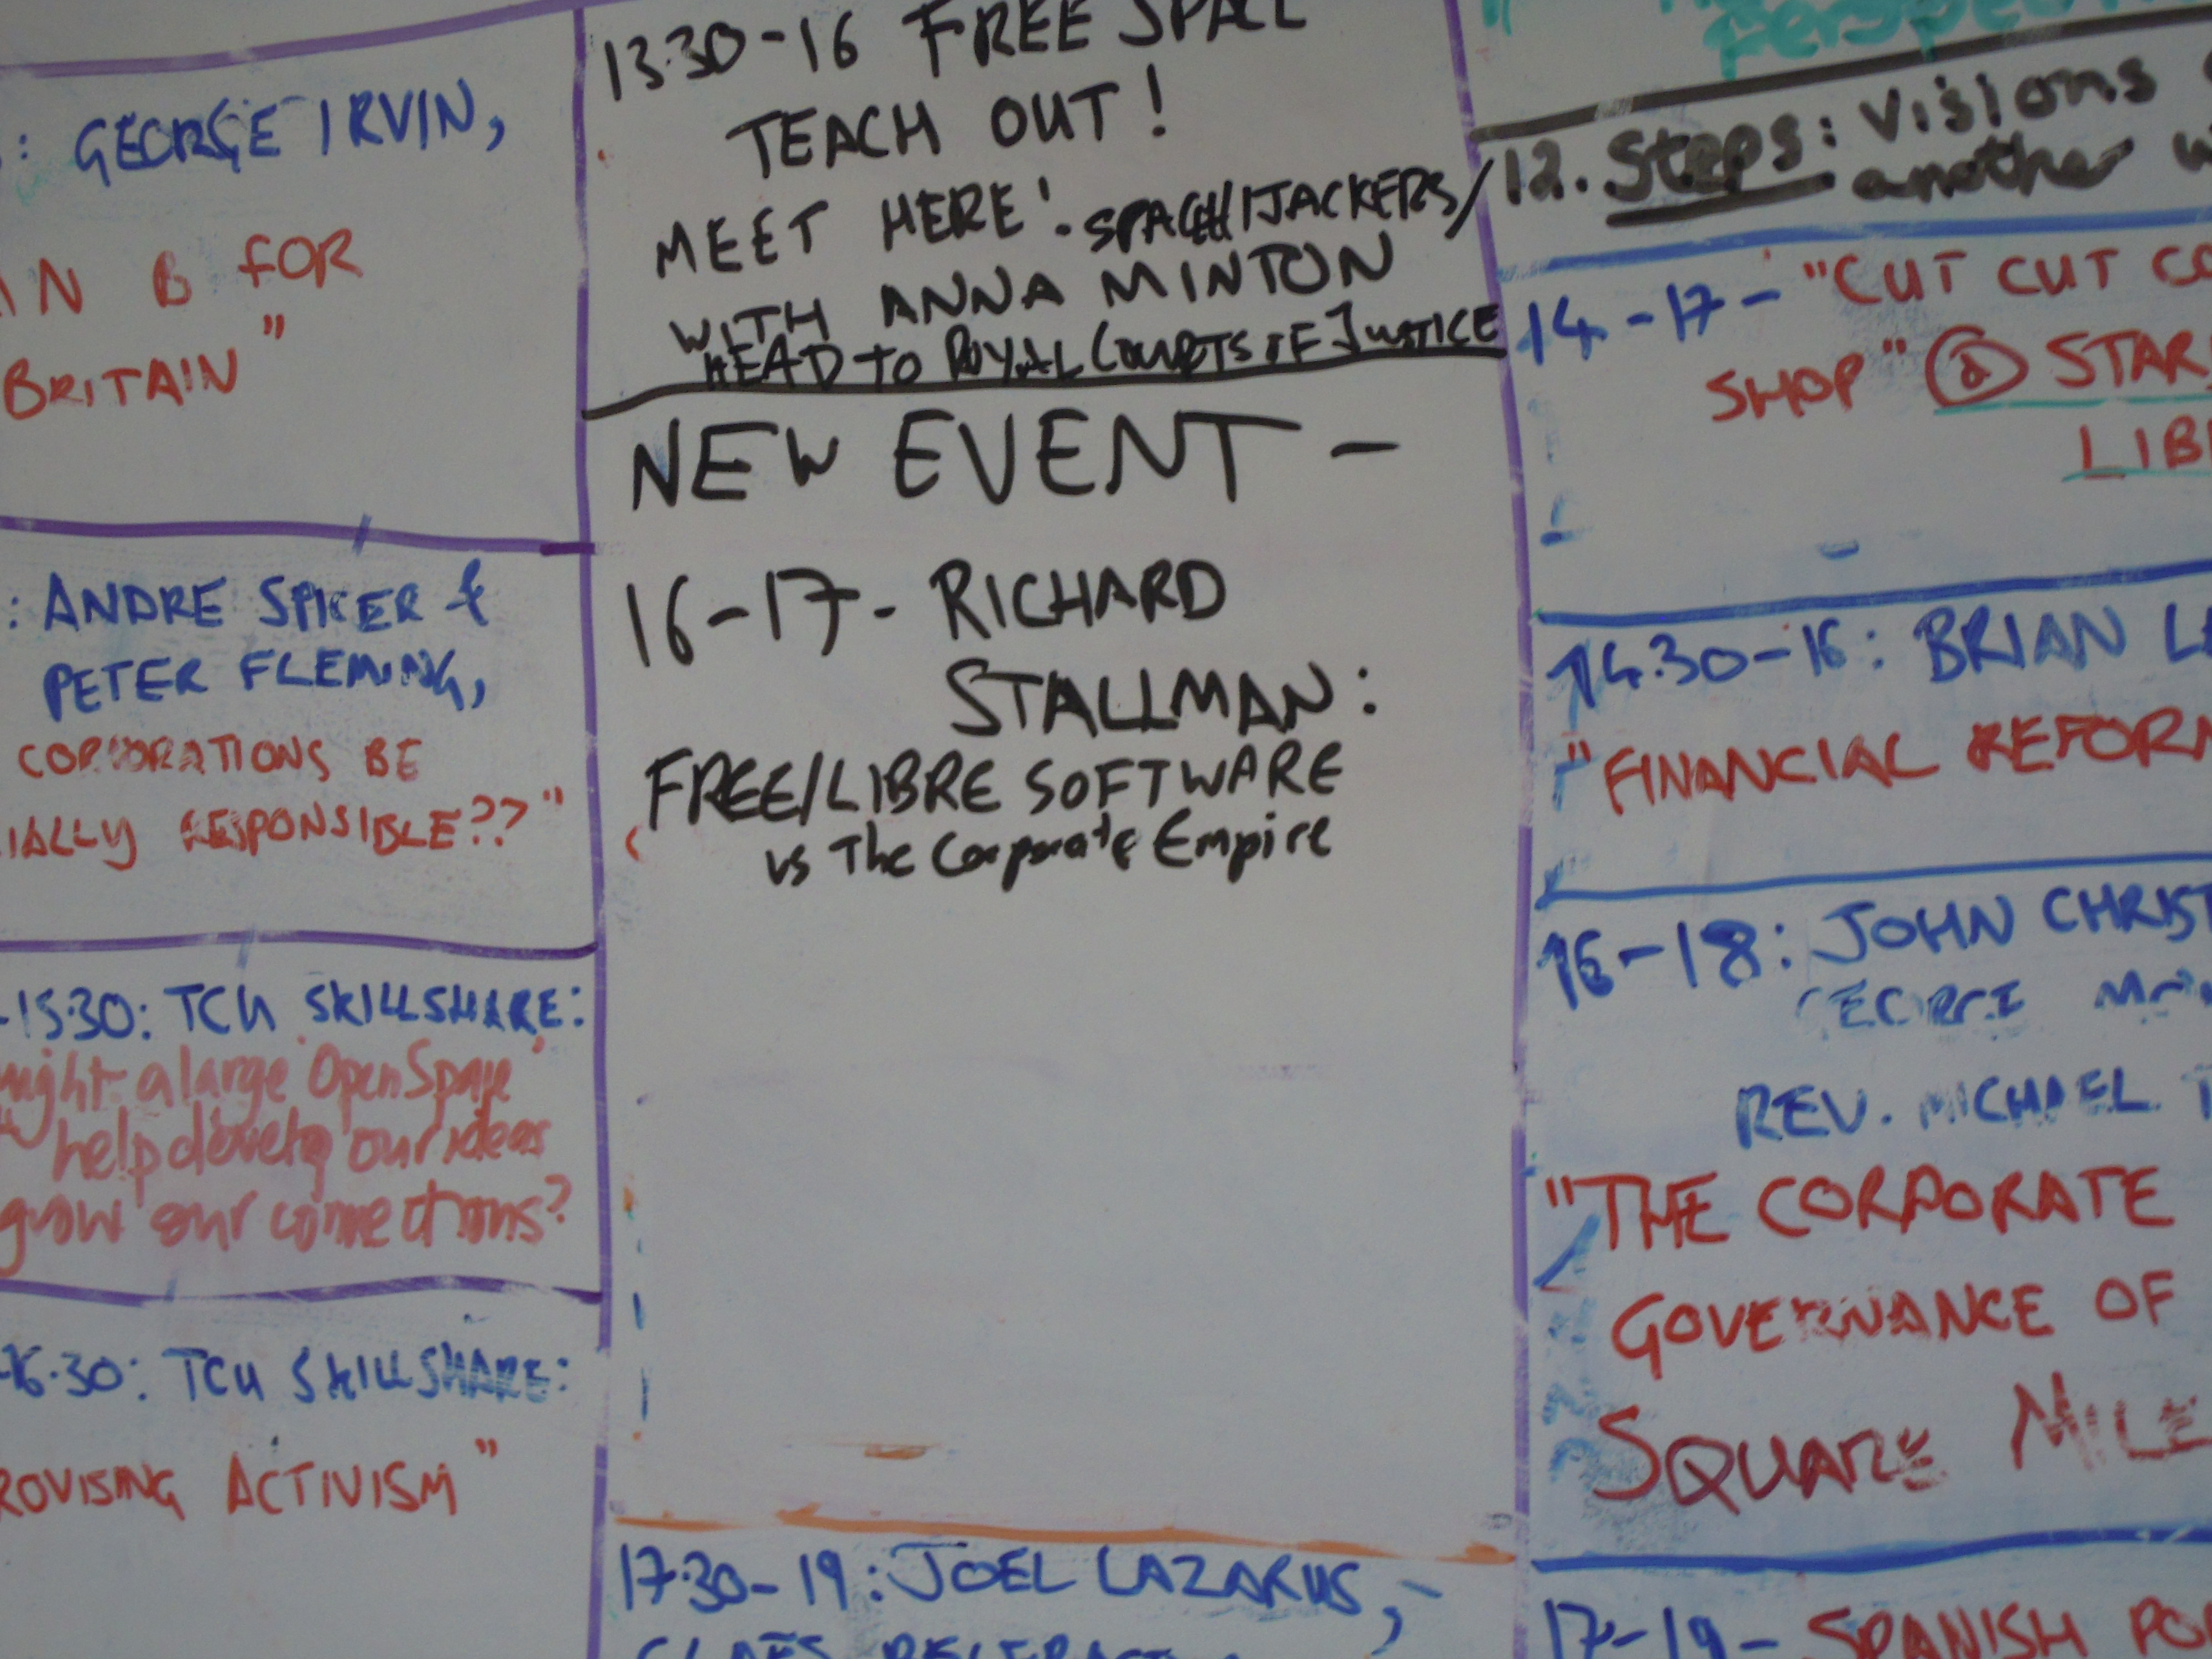 : GEORGE IRVIN,
N B FOR
BRITAIN"
: ANDRE SPICER &
PETER FLEMING,
CORPORATIONS BE
IALLY RESPONSIBLE??"
-15.30: TCU SKILLSHARE:
might a large 'Open Space'
help develop our ideas
grow our connections?
-16.30: TCU SKILLSHARE:
ROVISING ACTIVISM"
13.30-16 FREE SPACE
TEACH OUT!
MEET HERE! - SPACEHIJACKERS/
WITH ANNA MINTON
HEAD TO ROYAL COURTS OF JUSTICE
NEW EVENT -
16-17- RICHARD
STALLMAN:
FREE/LIBRE SOFTWARE
vs The Corporate Empire
17.30-19: JOEL LAZARUS,
12. Steps: Visions
another
14-17- "CUT CUT
SHOP" @ STAR
LIB
14.30-16: BRIAN
"FINANCIAL REFORM
16-18: JOHN CHRIST
REV. MICHAEL
"THE CORPORATE
GOVERNANCE OF
SQUARE MILE
17-19- SPANISH